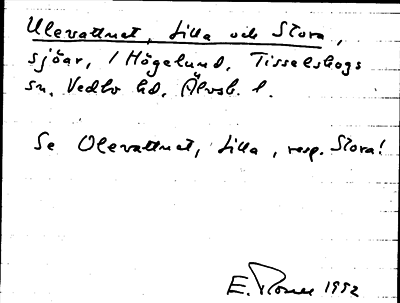 Ulevattnet, Lilla och Stora,
sjöar, i Högelund, Tisselskogs
sn, Vedbo hd, Älvsb. l.
Se Olevattnet, Lilla, resp. Stora!
E. 1952